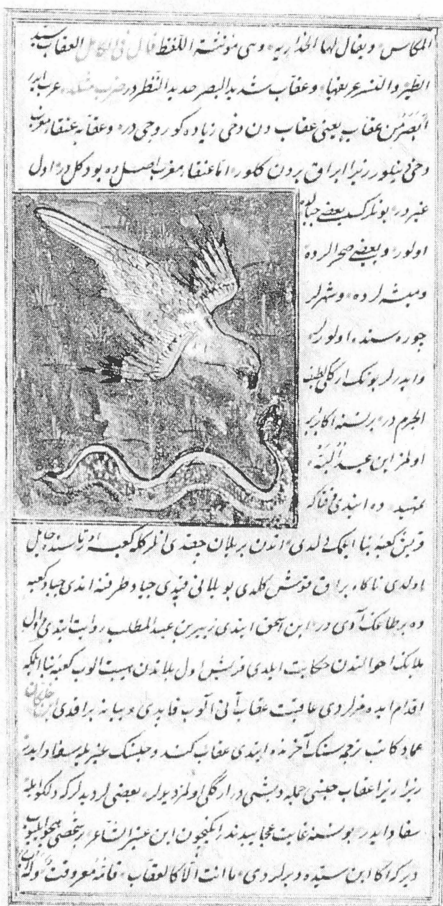 المكاس ويقال لها الخداريه وهى مؤنثة اللفظ قال فى الكامل العقاب سيد
الطير والنسر عريفها وعقاب شديد البصر حديد النظر در عرب
ابصر من عقاب يعنى عقاب دن دخى زياده كوروجى در وعقابه عنقاء مغرب
دخى ديلور زيرا ايراق يردن كلور اما عنقاء مغرب اصلده بو دكلدر اول
غيردر بونلرك بعضى جبالده
اولور وبعضى صحرالرده
وميشه لرده وشهرلر
جوره سنده اولور
بونك اركگى لطيف
الجرم در
اولمز ابن عبد البر
تمهيد ده ايتدى
قريش كعبه بنا ايتمك ديلدى اندن بر يلان چقدى انلرله كعبه اورتاسنده حايل
اولدى ناكاه بر اق قوش كلدى بو يلانى قپدى جياد طرفنه اتدى جياد كعبه
ده بر طاغك آدى در ابن اسحق ايتدى زبير بن عبد المطلب روايت ايتدى اول
يلانك احوالندن حكايت ايلدى قريش اول يلاندن هيبت الوب كعبه بنا ايتمكه
اقدام ايده مزلردى عاقبت عقاب آنى آلوب قاپدى وبيابانه براقدى ابن خلكان
عماد كاتب ترجمه سنك آخرنده ايتدى عقاب كندو جنسنك غيريله سفاد ايدر
زيرا عقاب جنسى جمله ديشى در اركگى اولمز ديرلر بعضى لر ديديلر كه دلكو ايله
سفاد ايدر بو سنه غايت عجايبدندر انكيچون ابن عنين الشاعر بر شخصى هجو ايليوب
ديركه اكا ابن سيده ديرلردى ما انت الا كالعقاب فامه معروفة وله اب